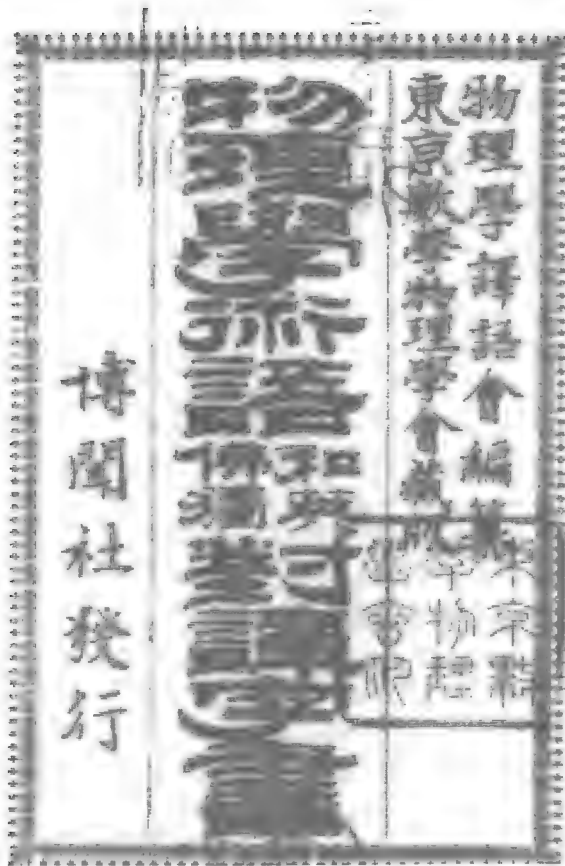 物理學譯語會編纂
東京數學物理學會藏版
物理學術語和英佛獨對譯字書
博聞社發行